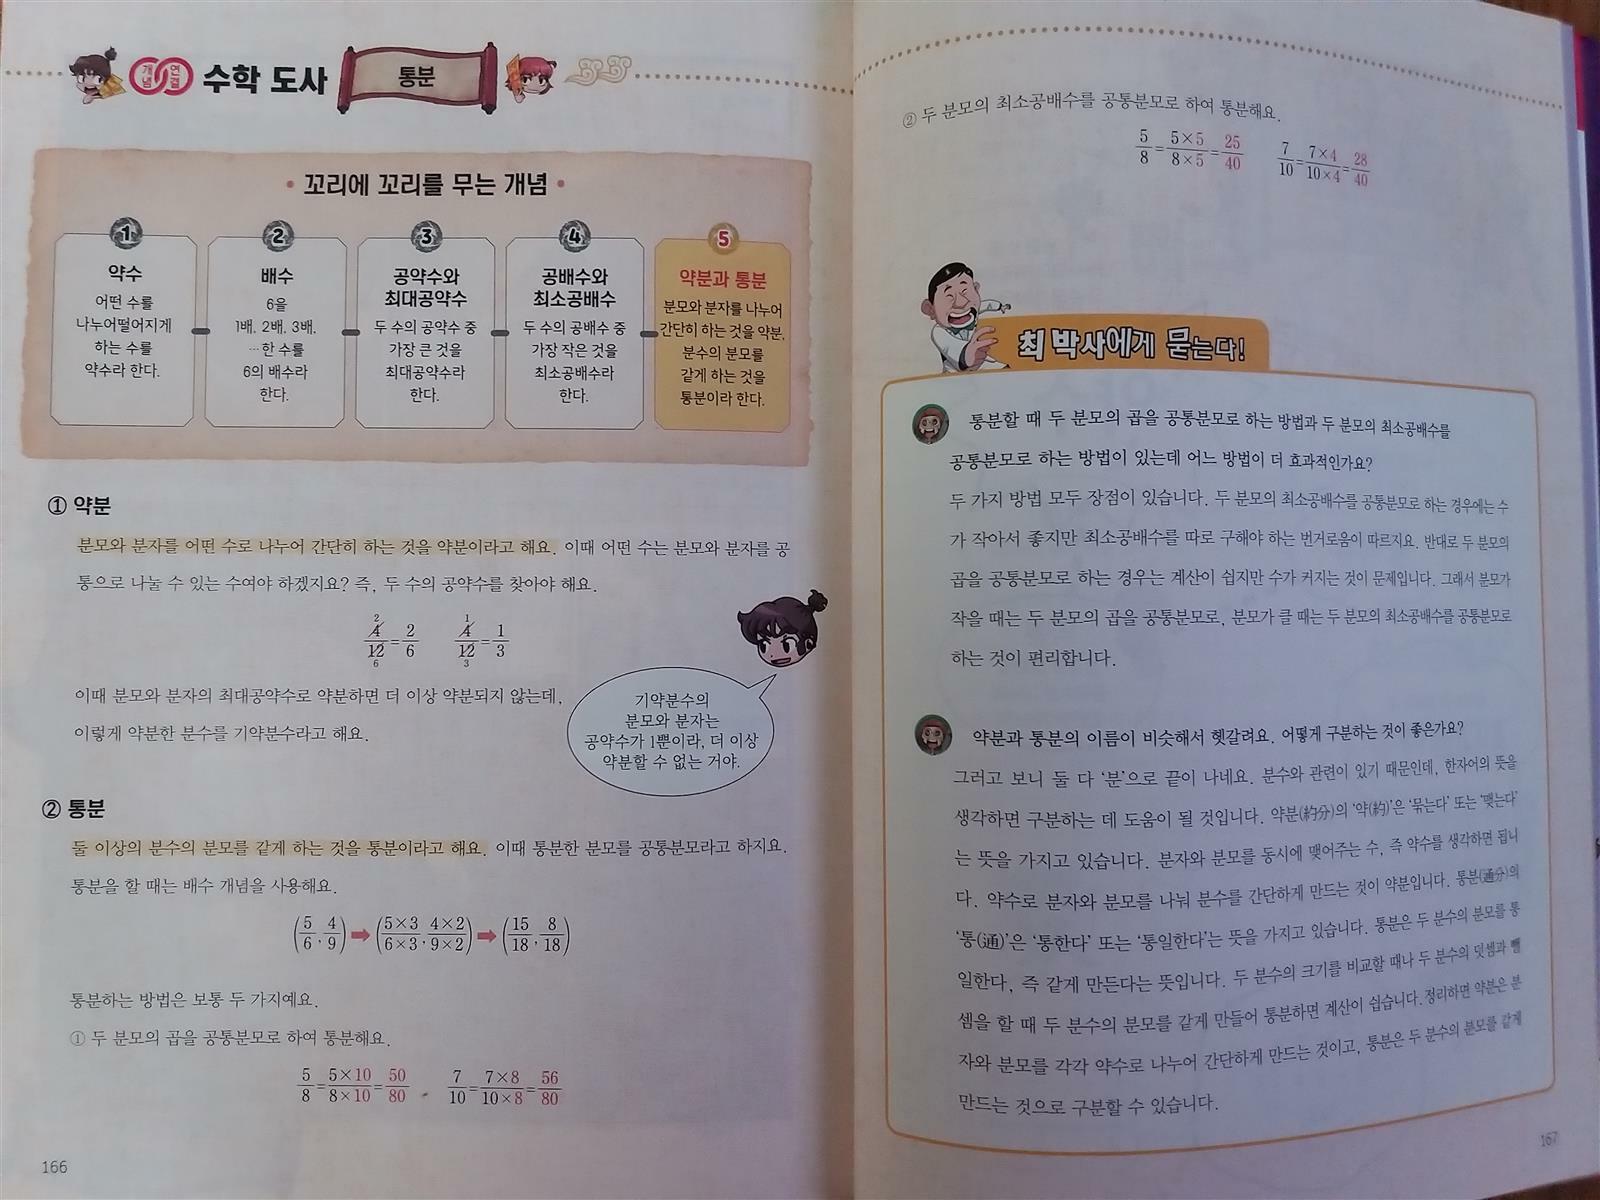 개념 연결
수학 도사
통분
• 꼬리에 꼬리를 무는 개념 •
1
약수
어떤 수를
나누어떨어지게
하는 수를
약수라 한다.
2
배수
6을
1배, 2배, 3배,
…한 수를
6의 배수라
한다.
3
공약수와
최대공약수
두 수의 공약수 중
가장 큰 것을
최대공약수라
한다.
4
공배수와
최소공배수
두 수의 공배수 중
가장 작은 것을
최소공배수라
한다.
5
약분과 통분
분모와 분자를 나누어
간단히 하는 것을 약분,
분수의 분모를
같게 하는 것을
통분이라 한다.
① 약분
분모와 분자를 어떤 수로 나누어 간단히 하는 것을 약분이라고 해요. 이때 어떤 수는 분모와 분자를 공
통으로 나눌 수 있는 수여야 하겠지요? 즉, 두 수의 공약수를 찾아야 해요.
2 1
4/12=2/6 4/12=1/3
6 3
이때 분모와 분자의 최대공약수로 약분하면 더 이상 약분되지 않는데,
이렇게 약분한 분수를 기약분수라고 해요.
기약분수의
분모와 분자는
공약수가 1뿐이라, 더 이상
약분할 수 없는 거야.
② 통분
둘 이상의 분수의 분모를 같게 하는 것을 통분이라고 해요. 이때 통분한 분모를 공통분모라고 하지요.
통분을 할 때는 배수 개념을 사용해요.
(5/6, 4/9) ➡ (5×3/6×3, 4×2/9×2) ➡ (15/18, 8/18)
통분하는 방법은 보통 두 가지예요.
① 두 분모의 곱을 공통분모로 하여 통분해요.
5/8=5×10/8×10=50/80 7/10=7×8/10×8=56/80
166
② 두 분모의 최소공배수를 공통분모로 하여 통분해요.
5/8=5×5/8×5=25/40 7/10=7×4/10×4=28/40
최 박사에게 묻는다!
통분할 때 두 분모의 곱을 공통분모로 하는 방법과 두 분모의 최소공배수를
공통분모로 하는 방법이 있는데 어느 방법이 더 효과적인가요?
두 가지 방법 모두 장점이 있습니다. 두 분모의 최소공배수를 공통분모로 하는 경우에는 수
가 작아서 좋지만 최소공배수를 따로 구해야 하는 번거로움이 따르지요. 반대로 두 분모의
곱을 공통분모로 하는 경우는 계산이 쉽지만 수가 커지는 것이 문제입니다. 그래서 분모가
작을 때는 두 분모의 곱을 공통분모로, 분모가 클 때는 두 분모의 최소공배수를 공통분모로
하는 것이 편리합니다.
약분과 통분의 이름이 비슷해서 헷갈려요. 어떻게 구분하는 것이 좋은가요?
그러고 보니 둘 다 ‘분’으로 끝이 나네요. 분수와 관련이 있기 때문인데, 한자어의 뜻을
생각하면 구분하는 데 도움이 될 것입니다. 약분(約分)의 ‘약(約)’은 ‘묶는다’ 또는 ‘맺는다’
는 뜻을 가지고 있습니다. 분자와 분모를 동시에 맺어주는 수, 즉 약수를 생각하면 됩니
다. 약수로 분자와 분모를 나눠 분수를 간단하게 만드는 것이 약분입니다. 통분(通分)의
‘통(通)’은 ‘통한다’ 또는 ‘통일한다’는 뜻을 가지고 있습니다. 통분은 두 분수의 분모를 통
일한다, 즉 같게 만든다는 뜻입니다. 두 분수의 크기를 비교할 때나 두 분수의 덧셈과 뺄
셈을 할 때 두 분수의 분모를 같게 만들어 통분하면 계산이 쉽습니다. 정리하면 약분은 분
자와 분모를 각각 약수로 나누어 간단하게 만드는 것이고, 통분은 두 분수의 분모를 같게
만드는 것으로 구분할 수 있습니다.
167